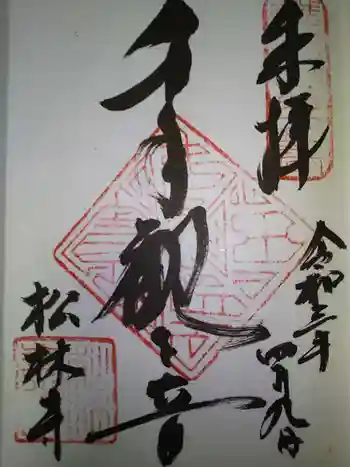 奉拝
令和三年
四月九日
千手観音
松林寺